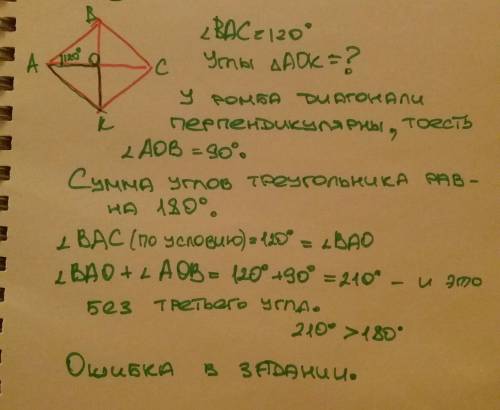 B
A 120° O C
K
∠BAC=120°
Углы △AOK=?
У ромба диагонали
перпендикулярны, тоесть
∠AOB=90°.
Сумма углов треугольника рав-
на 180°.
∠BAC (по условию)=120°=∠BAO
∠BAO+∠AOB=120°+90°=210° – и это
без третьего угла.
210°>180°
Ошибка в задании.